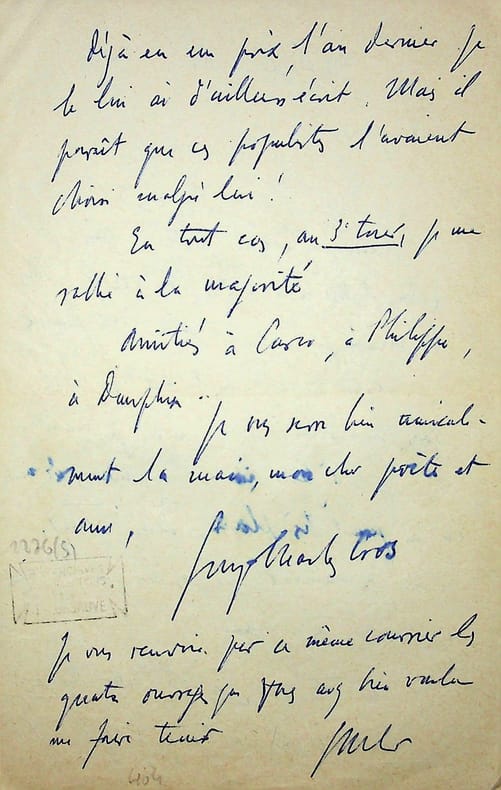 déjà eu un prix l'an dernier je
le lui ai d'ailleurs écrit. Mais il
paraît que ces populistes l'avaient
choisi malgré lui !
En tout cas, au 3e tour, je me
rallie à la majorité
Amitiés à Carco, à Philippe,
à Dauphin..
Je vous serre bien amicale-
ment la main, mon cher poète et
ami,
Guy-Charles Cros
1276(5)
Je vous renvoie par ce même courrier les
quatre ouvrages que vous avez bien voulu
me faire tenir